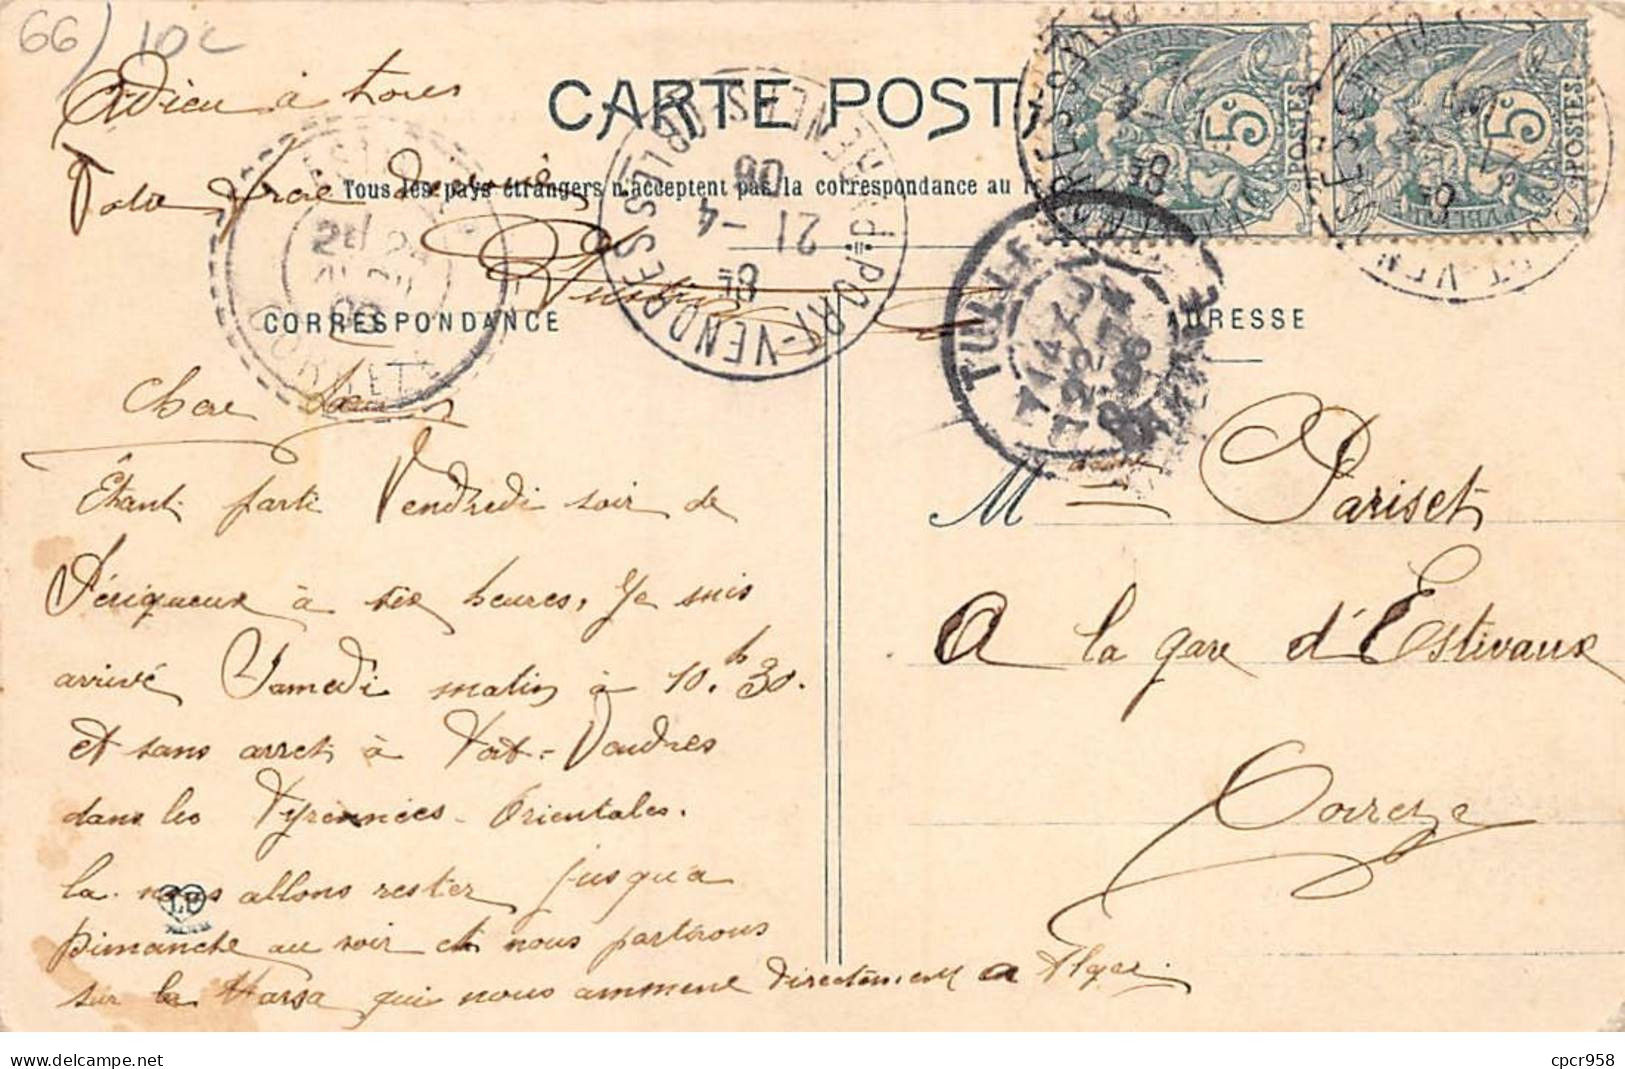 66/10c
Adieu à tous
Votre frère
CARTE POST
Tous les pays étrangers n'acceptent pas la correspondance au
5c POSTES
5c POSTES
PORT-VENDRES
8E
21 -4
08
TULLE
CORRESPONDANCE
ADRESSE
Chere Sœur
Étant parti Vendredi soir de
Périgueux à six heures, Je suis
arrivé Samedi matin à 10.h 30.
et sans arret à Port-Vendres
dans les Pyrennées-Orientales.
la nous allons rester jusqu'a
Dimanche au soir et nous partirons
sur le qui nous ammene directement a Alger.
Mme Pariset
A la gare d'Estivaux
Correze
cpcr958